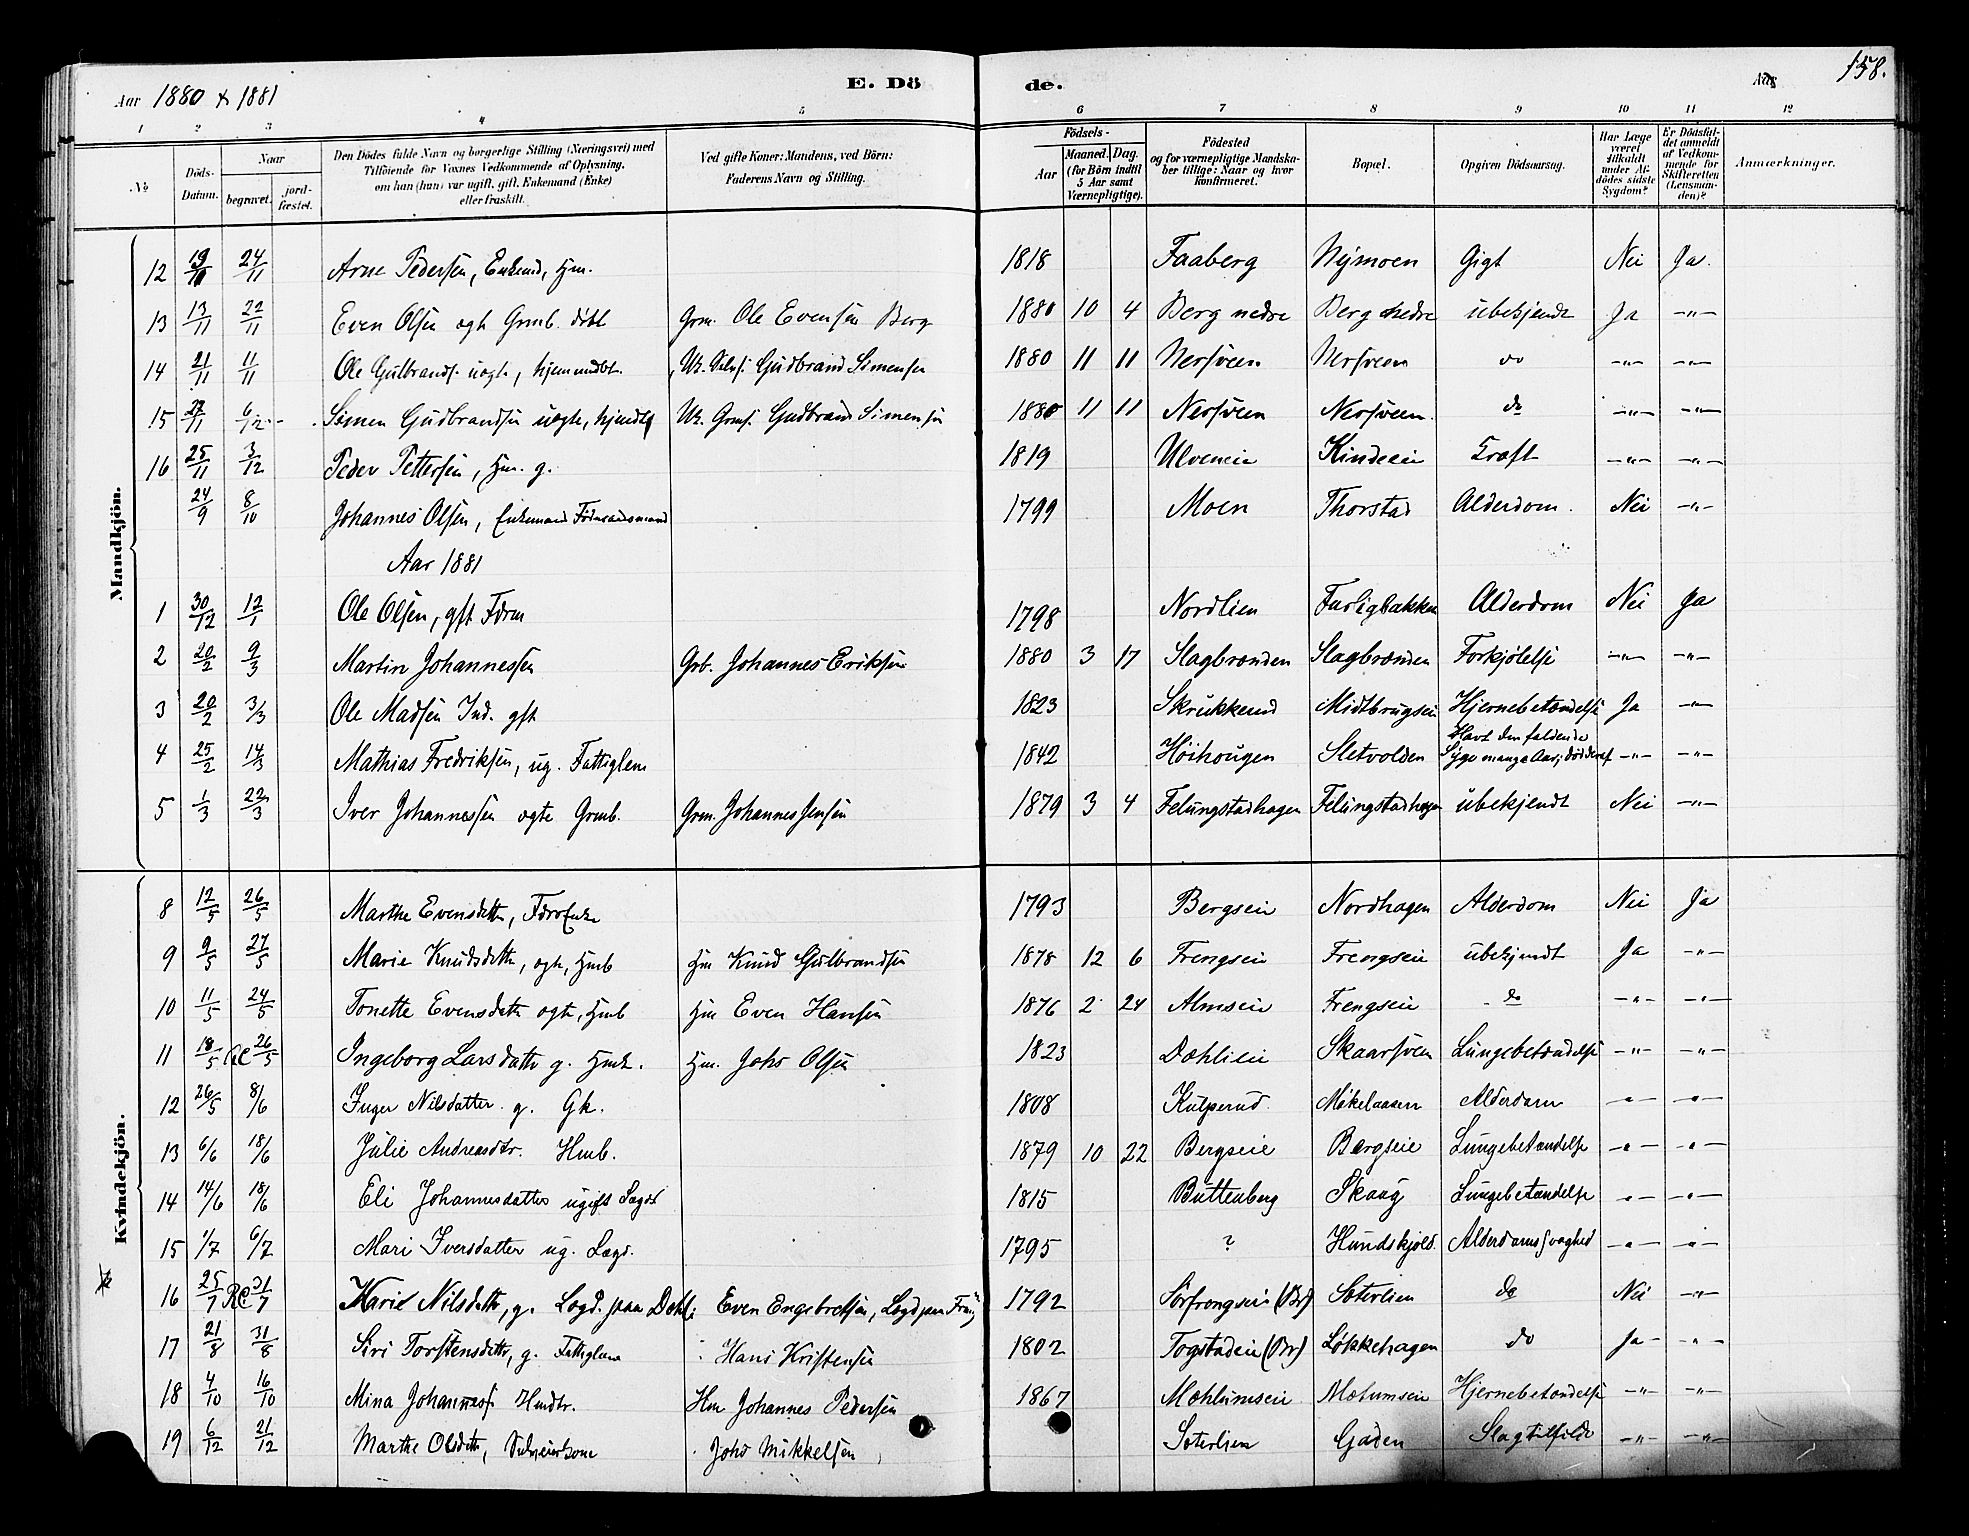 Aar 1880 & 1881 E. Dö de. Aar 158.
1 2 3 4 5 6 7 8 9 10 11 12
No
Döds-Datum.
Naar
begravet.
jordfæstet.
Den Dödes fulde Navn og borgerlige Stilling (Næringsvei) med Tilföiende for Voxnes Vedkommende af Oplysning, om han (hun) var ugift, gift, Enkemand (Enke) eller fraskilt.
Ved gifte Koner: Mandens, ved Börn: Faderens Navn og Stilling.
Födsels-
Aar
Maaned. Dag.
(for Börn indtil 5 Aar samt Værnepligtige).
Födested og for værnepligtige Mandskaber tillige: Naar og hvor konfirmeret.
Bopæl.
Opgiven Dödsaarsag.
Har Læge været tilkaldt under Afdödes sidste Sygdom?
Er Dödsfaldet anmeldt af Vedkommende for Skifteretten (Lensmanden)?
Anmærkninger.
Mandkjön.
12 24/11 Arne Pedersen, Enkemd, Hm. 1818 Faaberg Nymoen Gigt Nei Ja.
13 13/11 22/11 Even Olsen ægte Grmb. Grm. Ole Evensen Berg 1880 10 4 Berg nedre Berg nedre ubekjendt Ja -"-
14 21/11 11/11 Ole Gulbrands. uægte, Gudbrand Simensen 1880 11 11 Nersveen Nersveen do -"- -"-
15 6/12 Simen Gudbrandsen uægte, Gudbrand Simensen 1880 11 11 Nersveen Nersveen. do -"- -"-
16 25/11 3/12 Peder Pettersen, Hm. g. 1819 Ulveneie Kindeeie -"- -"-
24/9 8/10 Johannes Olsen, Enkemand Föderaadsmand 1799 Moen Thorstad Alderdom. Nei -"-
Aar 1881
1 30/12 12/1 Ole Olsen, gft Fdrm 1798 Nordlien Farligbakken Alderdom Nei Ja
2 20/2 9/3 Martin Johannessen Grb. Johannes Eriksen 1880 3 17 Slagbrænden Slagbrænden Forkjølelse -"- -"-
3 20/2 3/3 Ole Madsen Ind. gft 1823 Skrukkerud Midtbrugseie Hjernebetændelse Ja -"-
4 25/2 14/3 Mathias Fredriksen, ug. Fattiglem 1842 Höihougen Sletvolden Havt den faldende Syge mange Aar; död deraf -"- -"-
5 1/3 22/3 Iver Johannessen ægte Grmb. Grm. Johannes Jensen 1879 3 4 Felungstadhagen Felungstadhagen ubekjendt Nei -"-
Kvindekjön.
8 12/5 26/5 Marthe Evensdatter, 1793 Bergseie Nordhagen Alderdom Nei Ja
9 9/5 27/5 Marie Knudsdatter, ægte, Hmb Hm Knud Gulbrandsen 1878 12 6 Frengseie Frengseie ubekjendt Ja -"-
10 11/5 24/5 Tonette Evensdatter ægte, Hmb Hm Even Hansen 1876 2 24 Almseie Frengseie do -"- -"-
11 18/5 26/5 Ingeborg Larsdatter g. Hmk. Hm. Johs Olsen 1823 Dæhlieie Skaarsveen Lungebetændelse -"- -"-
12 26/5 8/6 Inger Nilsdatter. g. Gk. 1808 Kulperud. Mökelaasen Alderdom -"- -"-
13 6/6 18/6 Julie Andreasdtr. Hmb. 1879 10 22 Bergseie Bergseie Lungebetændelse -"- -"-
14 14/6 18/6 Eli Johannesdatter ugift Lægd 1815 Buttenberg Skaag Lungebetændelse -"- -"-
15 1/7 6/7 Mari Iversdatter ug. Lægd. 1795 ? Hundskjold. Alderdomssvaghed -"- -"-
16 25/7 31/7 Karie Nilsdatter, g. Lægd. paa Dehli Even Engebretsen, Lægd paa 1792 Sörfrongseie (Br) Sæterlien do Nei -"-
17 21/8 31/8 Siri Torstensdatter, g. Fattiglem Hans Kristensen 1802 Togstadeie (Br) Løkkehagen do Ja -"-
18 4/10 16/10 Mina Johannesd. Hmdtr. Hm Johannes Pedersen 1867 Mæhlumseie Mælumseie Hjernebetændelse -"- -"-
19 6/12 21/12 Marthe Olsdatter, Selveierkone Johs Mikkelsen Sæterlien Gaden Slagtilfælde -"- -"-